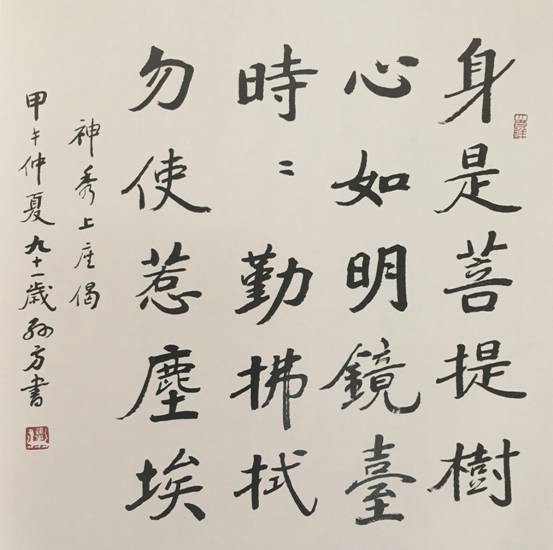 身是菩提樹
心如明鏡臺
時〻勤拂拭
勿使惹塵埃
神秀上座偈
甲午仲夏九十一歲孫方書